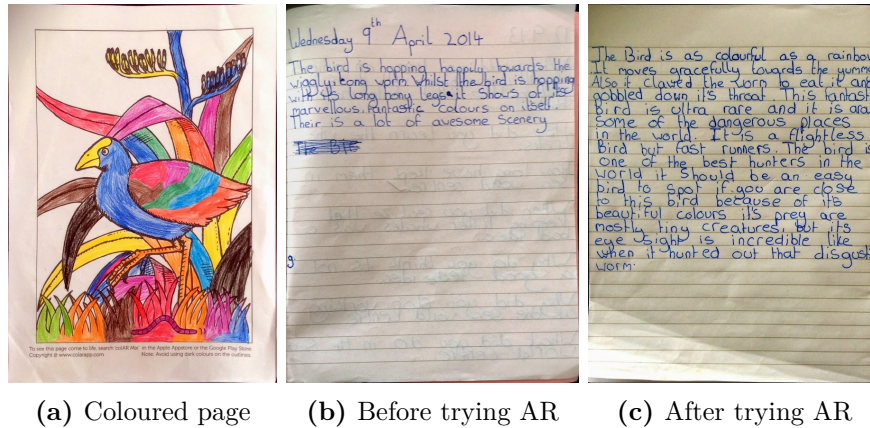 To see this page come to life, search colAR Mix in the Apple Appstore or the Google Play Store.
Copyright @ www.colarapp.com Note: Avoid using dark colours on the outlines.
(a) Coloured page
Wednesday 9th April 2014
The bird is hopping happily towards the
wiggly, long worm. Whilst the bird is hopping
with its long bony legs it shows of its
marvellous, fantastic colours on itself.
Their is a lot of awesome scenery
g
(b) Before trying AR
The Bird is as colourful as a rainbow
It moves gracefully towards the yumm
Also it clawed the worn to eat it and
gobbled down it's throat. This fantast
Bird is ultra rare and it is
Some of the dangerous places
in the world. It is a flightless
Bird but fast runners. The bird is
one of the best hunters in the
world it should be an easy
bird to spot if you are close
to this bird because of it's
beautiful colours it's prey are
mostly tiny creatures, but its
eye sight is incredible like
when it hunted out that disgusti
worm.
(c) After trying AR